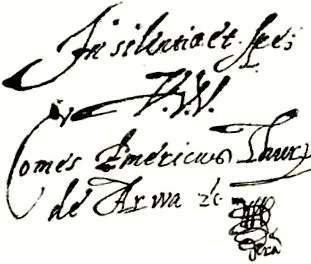 In silentio et spes
V.W.
Comes Emericus Thurzo
de Arwa